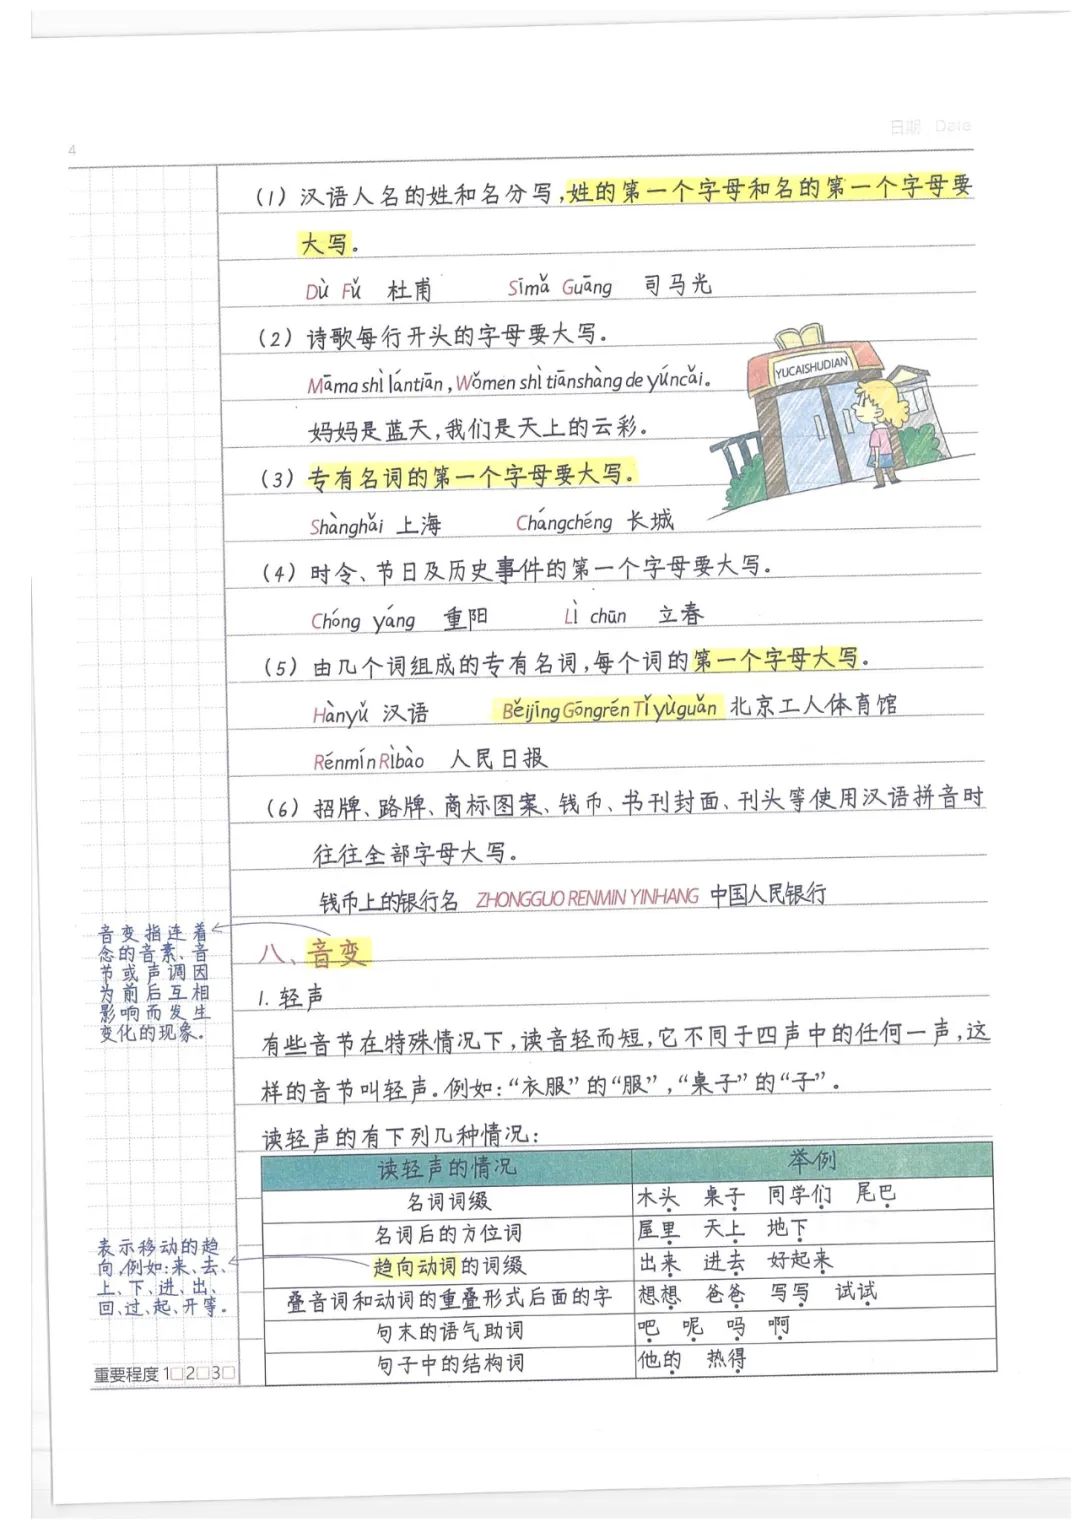 日期 Date
4
(1) 汉语人名的姓和名分写,姓的第一个字母和名的第一个字母要
大写.
Dù Fǔ 杜甫 Sīmǎ Guāng 司马光
(2) 诗歌每行开头的字母要大写.
Māma shì lántiān, Wǒmen shì tiānshàng de yúncǎi.
YUCAISHUDIAN
妈妈是蓝天,我们是天上的云彩.
(3) 专有名词的第一个字母要大写.
Shànghǎi 上海 Chángchéng 长城
(4) 时令、节日及历史事件的第一个字母要大写.
Chóng yáng 重阳 Lì chūn 立春
(5) 由几个词组成的专有名词,每个词的第一个字母大写.
Hànyǔ 汉语 Běijīng Gōngrén Tǐyùguǎn 北京工人体育馆
Rénmín Rìbào 人民日报
(6) 招牌、路牌、商标图案、钱币、书刊封面、刊头等使用汉语拼音时
往往全部字母大写.
钱币上的银行名 ZHONGGUO RENMIN YINHANG 中国人民银行
音变指连着
念的音素、音
节或声调因
为前后互相
影响而发生
变化的现象.
八、音变
1. 轻声
有些音节在特殊情况下,读音轻而短,它不同于四声中的任何一声,这
样的音节叫轻声.例如:“衣服”的“服”,“桌子”的“子”.
读轻声的有下列几种情况:
读轻声的情况 举例
名词词缀 木头 桌子 同学们 尾巴
名词后的方位词 屋里 天上 地下
趋向动词的词缀 出来 进去 好起来
叠音词和动词的重叠形式后面的字 想想 爸爸 写写 试试
句末的语气助词 吧 呢 吗 啊
句子中的结构词 他的 热得
表示移动的趋
向,例如:来、去、
上、下、进、出、
回、过、起、开等.
重要程度 1□2□3□